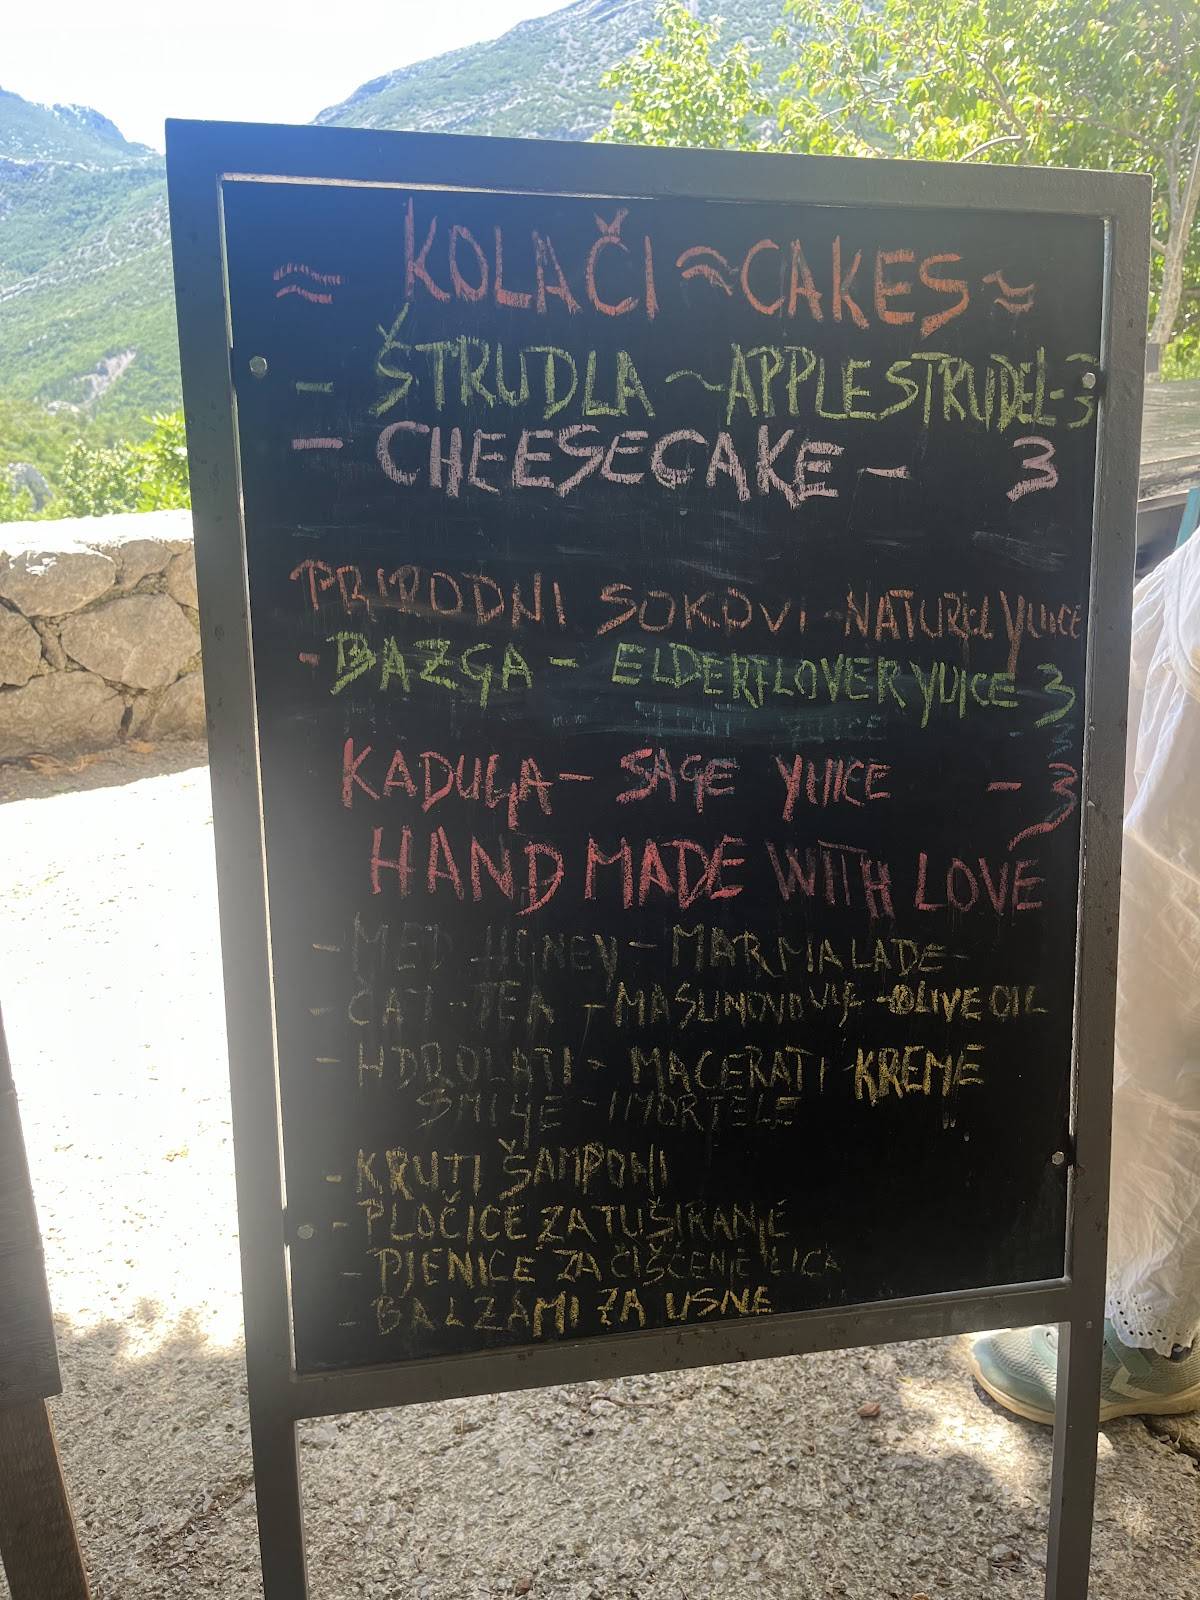 ≈ KOLAČI ≈ CAKES ≈
- ŠTRUDLA ~ APPLE STRUDEL - 3
- CHEESECAKE - 3
PRIRODNI SOKOVI - NATUREL YUICE
- BAZGA - ELDERFLOVER YUICE 3
KADULJA - SAGE YUICE - 3
HAND MADE WITH LOVE
- MED HONEY - MARMALADE
- ČAJ - TEA - MASLINOVO ULJE - OLIVE OIL
- HDROLATI - MACERATI KREME
SMILJE - IMORTELE
- KRUTI ŠAMPONI
- PLOČICE ZA TUŠIRANJE
- PJENICE ZA ČIŠĆENJE LICA
- BALZAMI ZA USNE